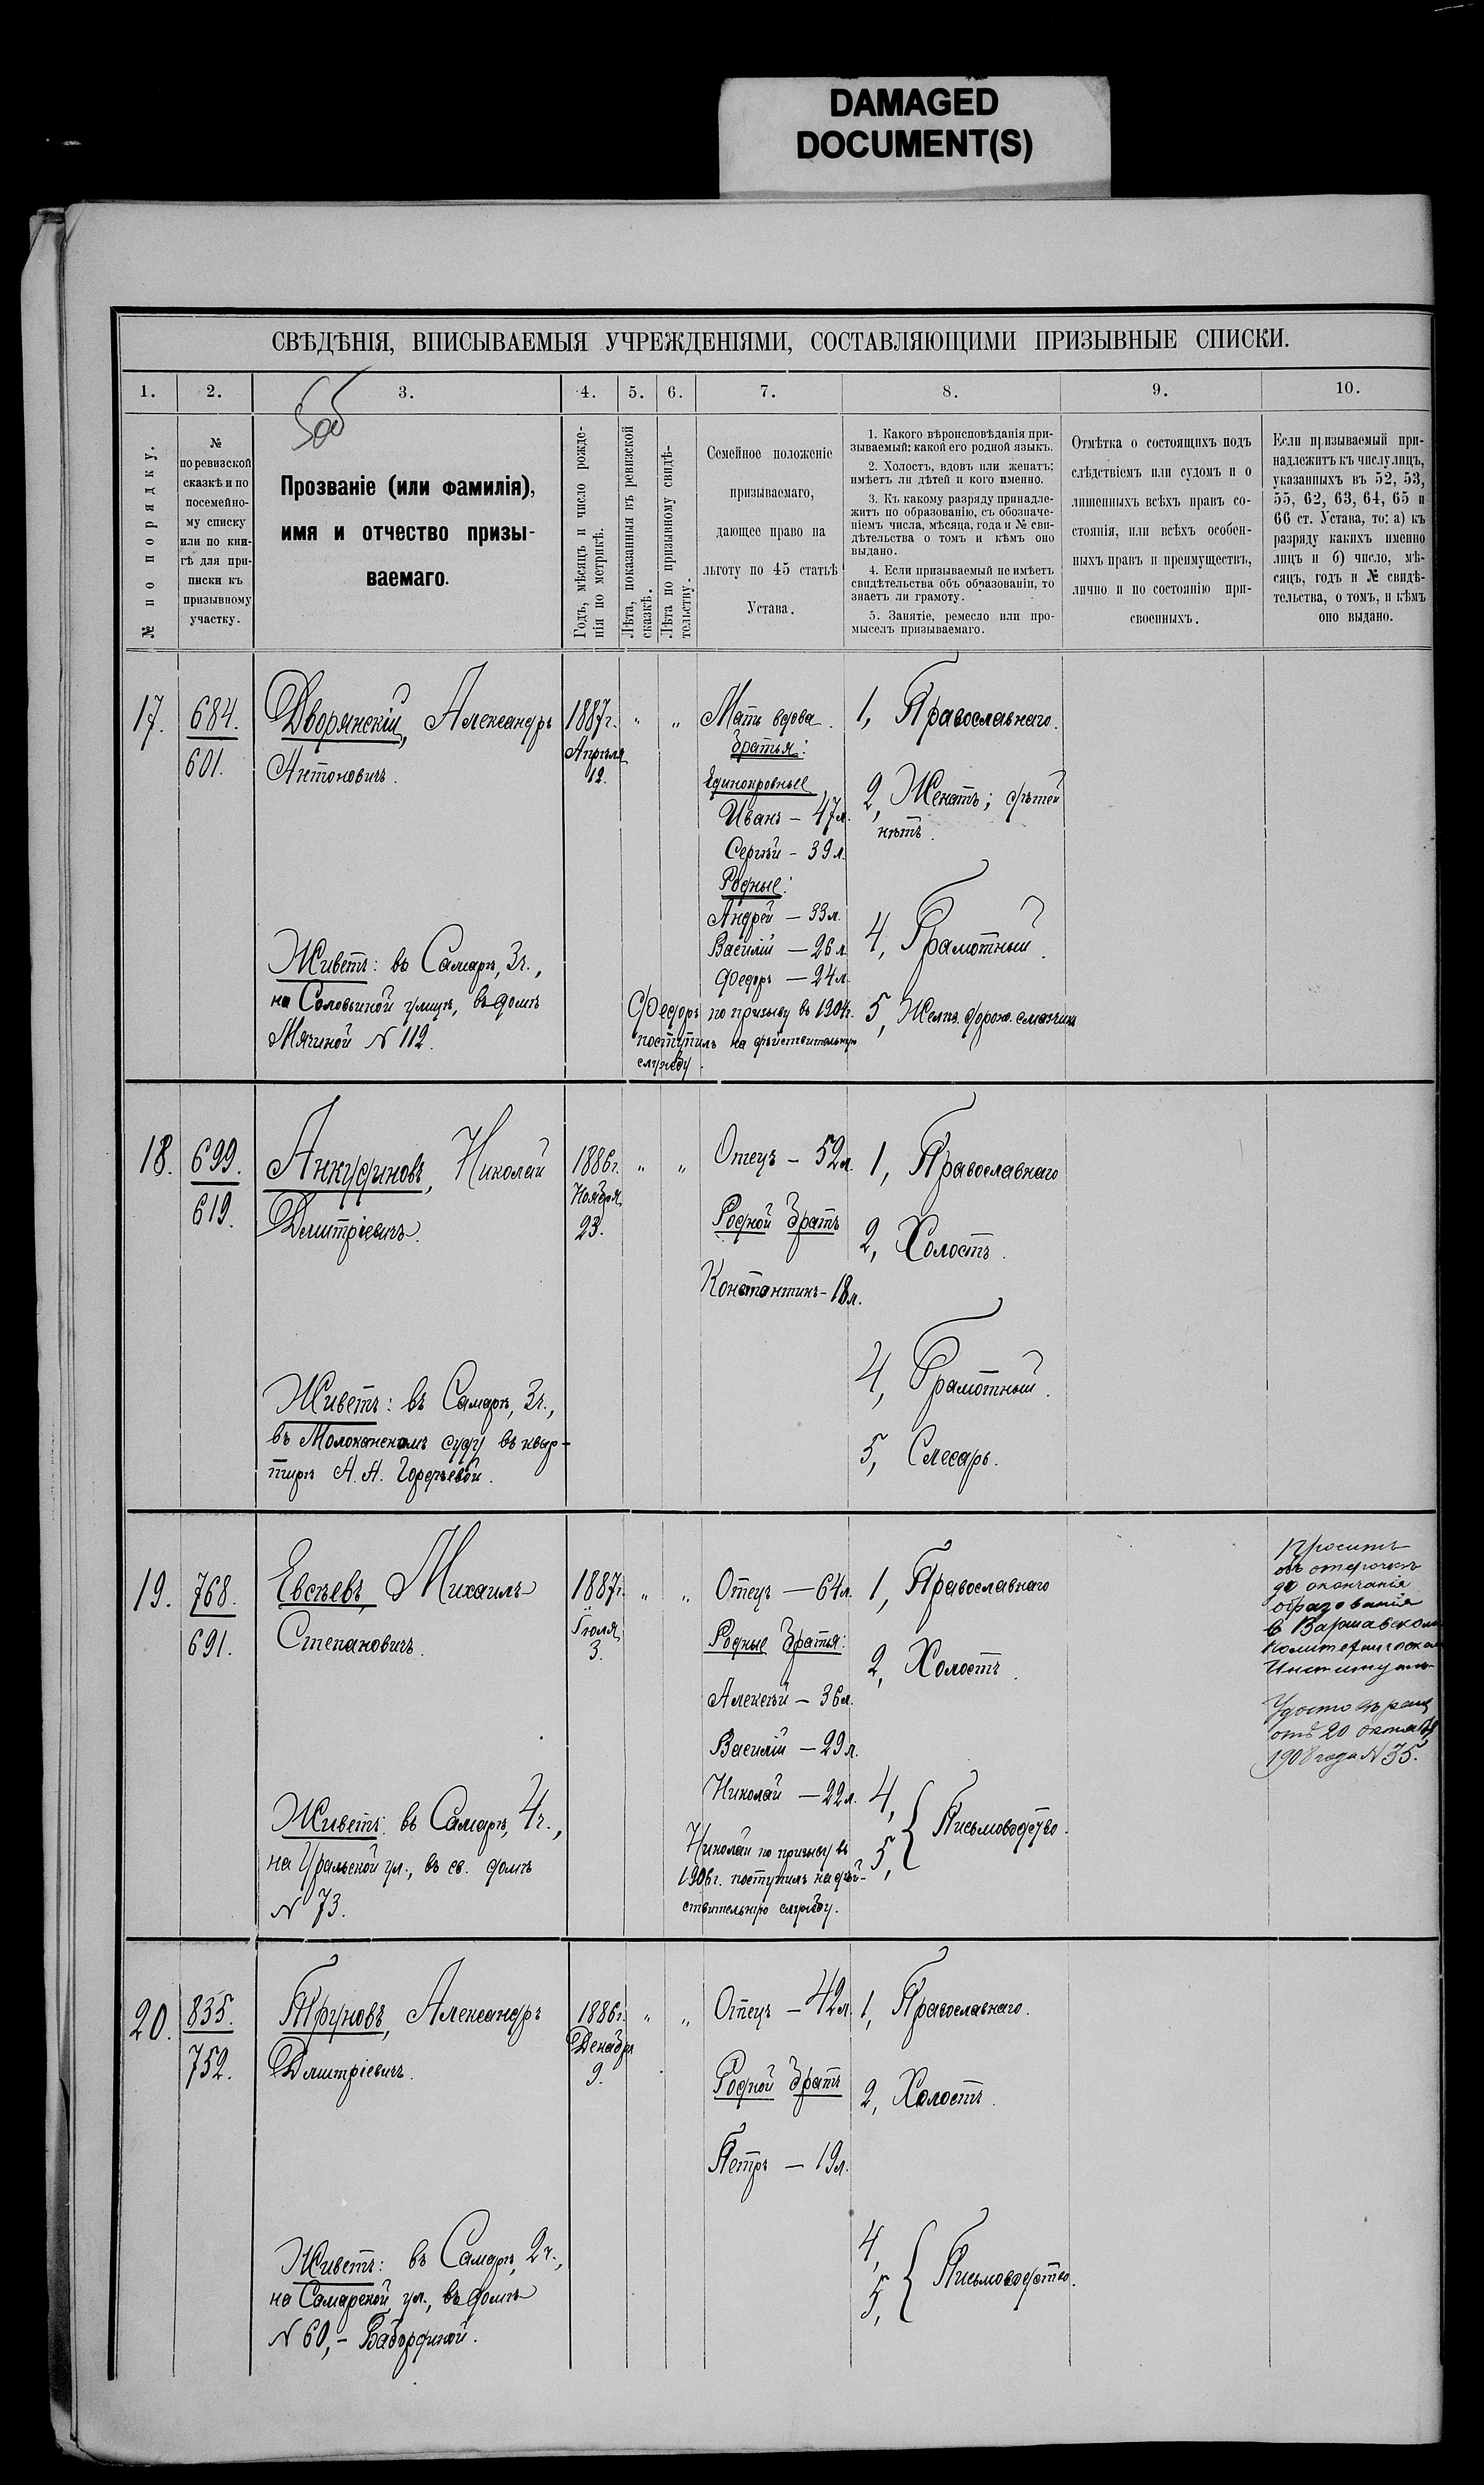 DAMAGED
DOCUMENT(S)
СВѢДѢНІЯ, ВПИСЫВАЕМЫЯ УЧРЕЖДЕНІЯМИ, СОСТАВЛЯЮЩИМИ ПРИЗЫВНЫЕ СПИСКИ.
1. 2. 3. 4. 5. 6. 7. 8. 9. 10.
№ по порядку.
№
по ревизской
сказкѣ и по
посемейно-
му списку
или по кни-
гѣ для при-
писки къ
призывному
участку.
Прозваніе (или фамилія),
имя и отчество призы-
ваемаго.
Годъ, мѣсяцъ и число рожде-
нія по метрикѣ.
Лѣта, показанныя въ ревизской
сказкѣ.
Лѣта по призывному свидѣ-
тельству.
Семейное положеніе
призываемаго,
дающее право на
льготу по 45 статьѣ
Устава.
1. Какого вѣроисповѣданія при-
зываемый: какой его родной языкъ.
2. Холостъ, вдовъ или женатъ;
имѣетъ ли дѣтей и кого именно.
3. Къ какому разряду принадле-
житъ по образованію, съ обозначе-
ніемъ числа, мѣсяца, года и № сви-
дѣтельства о томъ и кѣмъ оно
выдано.
4. Если призываемый не имѣетъ
свидѣтельства объ образованіи, то
знаетъ ли грамоту.
5. Занятіе, ремесло или про-
мыселъ призываемаго.
Отмѣтка о состоящихъ подъ
слѣдствіемъ или судомъ и о
лишенныхъ всѣхъ правъ со-
стоянія, или всѣхъ особен-
ныхъ правъ и преимуществъ,
лично и по состоянію при-
своенныхъ.
Если призываемый при-
надлежитъ къ числу лицъ,
указанныхъ въ 52, 53,
55, 62, 63, 64, 65 и
66 ст. Устава, то: а) къ
разряду какихъ именно
лицъ и б) число, мѣ-
сяцъ, годъ и № свидѣ-
тельства, о томъ, и кѣмъ
оно выдано.
17.
684.
601.
Дворянскій, Александръ
Антоновичъ.
Живетъ: въ Самарѣ, 3ч.,
на Соловьиной улицѣ, въ домѣ
Мячиной № 112.
1887г.
Апрѣля
12.
" "
Мать вдова.
Братья:
Единокровные
Иванъ – 47л.
Сергѣй – 39л.
Родные:
Андрей – 33л.
Василій – 26л.
Федоръ – 24л.
Федоръ по призыву въ 1904г.
поступилъ на дѣйствительную
службу.
1, Православнаго.
2, Женатъ; дѣтей
нѣтъ.
4, Грамотный.
5, Желѣз. дорож. смазчикъ
18.
699.
619.
Анкудиновъ, Николай
Дмитріевичъ.
Живетъ: въ Самарѣ, 3ч.,
въ Молоканскомъ саду въ квар-
тирѣ А. А. Гордѣевой.
1886г.
Ноября
23.
" "
Отецъ – 52л.
Родной братъ
Константинъ – 18л.
1, Православнаго
2, Холостъ.
4, Грамотный.
5, Слесарь.
19.
768.
691.
Евсѣевъ, Михаилъ
Степановичъ.
Живетъ: въ Самарѣ, 4ч.,
на Уральской ул., въ св. домѣ
№ 73.
1887г.
Іюля
3.
" "
Отецъ – 64л.
Родные братья:
Алексѣй – 36л.
Василій – 29л.
Николай – 22л.
Николай по призыву въ
1906г. поступилъ на дѣй-
ствительную службу.
1, Православнаго
2, Холостъ.
4,
5, { Письмоводство.
Проситъ
объ отсрочкѣ
до окончанія
образованія
въ Варшавском
Политехническом
Институтѣ
от 20 октября
1908 года № 35.
20.
835.
752.
Труновъ, Александръ
Дмитріевичъ.
Живетъ: въ Самарѣ, 2ч.,
на Самарской ул., въ домѣ
№ 60, –
1886г.
Декабря
9.
" "
Отецъ – 42л.
Родной братъ
Петръ – 19л.
1, Православнаго.
2, Холостъ.
4,
5, { Письмоводство.